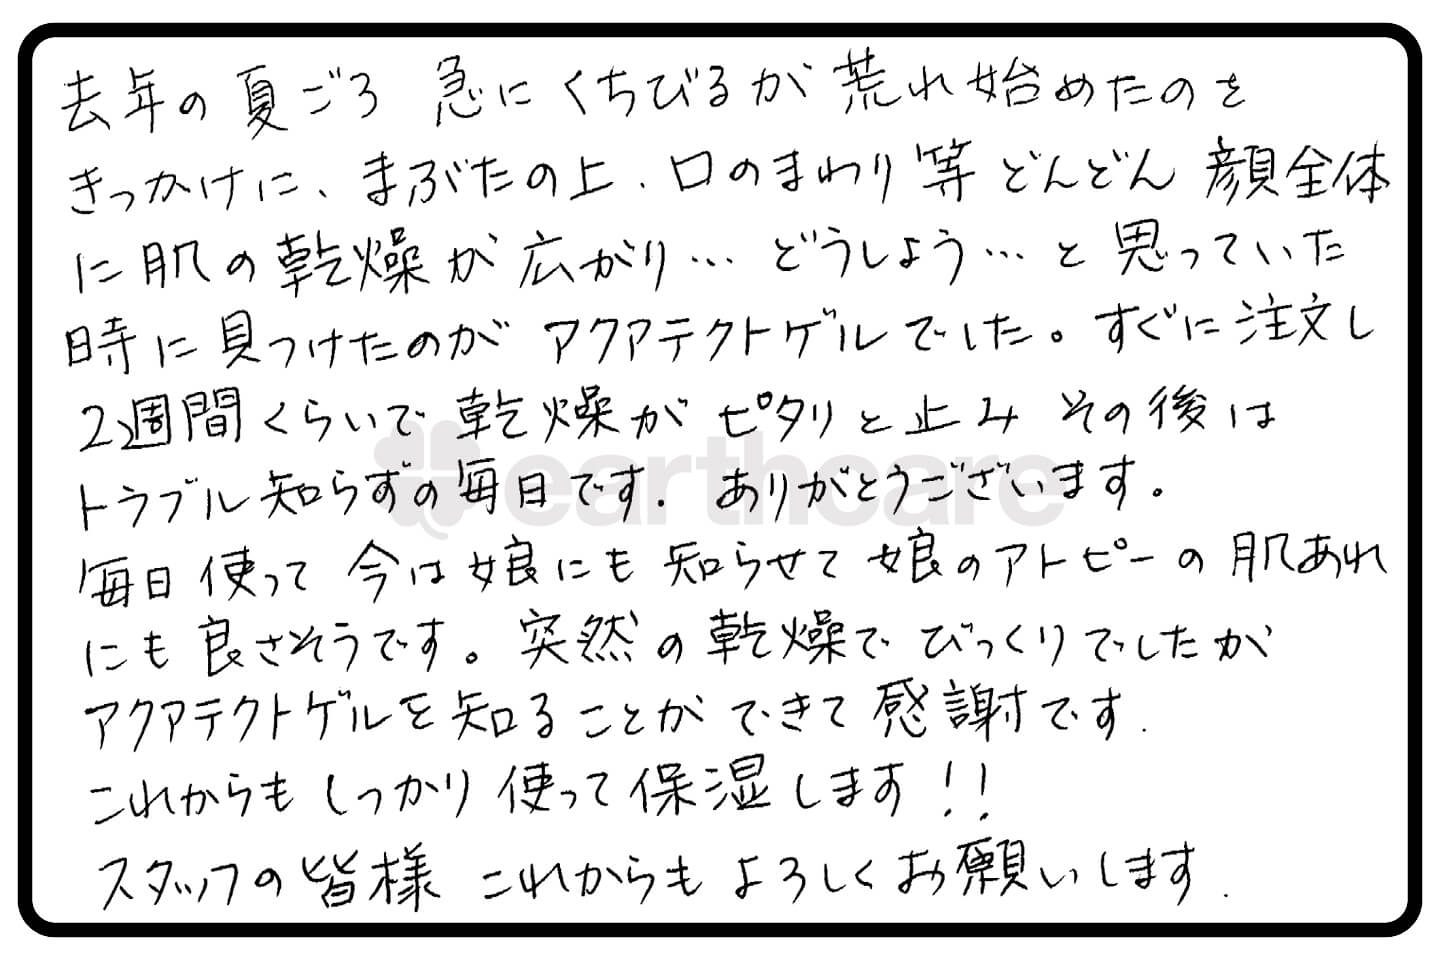 去年の夏ごろ 急にくちびるが荒れ始めたのを
きっかけに、まぶたの上、口のまわり等どんどん顔全体
に肌の乾燥が広がり…どうしよう…と思っていた
時に見つけたのがアクアテクトゲルでした。すぐに注文し
2週間くらいで乾燥がピタリと止み その後は
トラブル知らずの毎日です. ありがとうございます。
earthcare
毎日使って今は娘にも知らせて娘のアトピーの肌あれ
にも良さそうです。突然の乾燥でびっくりでしたが
アクアテクトゲルを知ることができて感謝です.
これからもしっかり使って保湿します!!
スタッフの皆様 これからもよろしくお願いします.